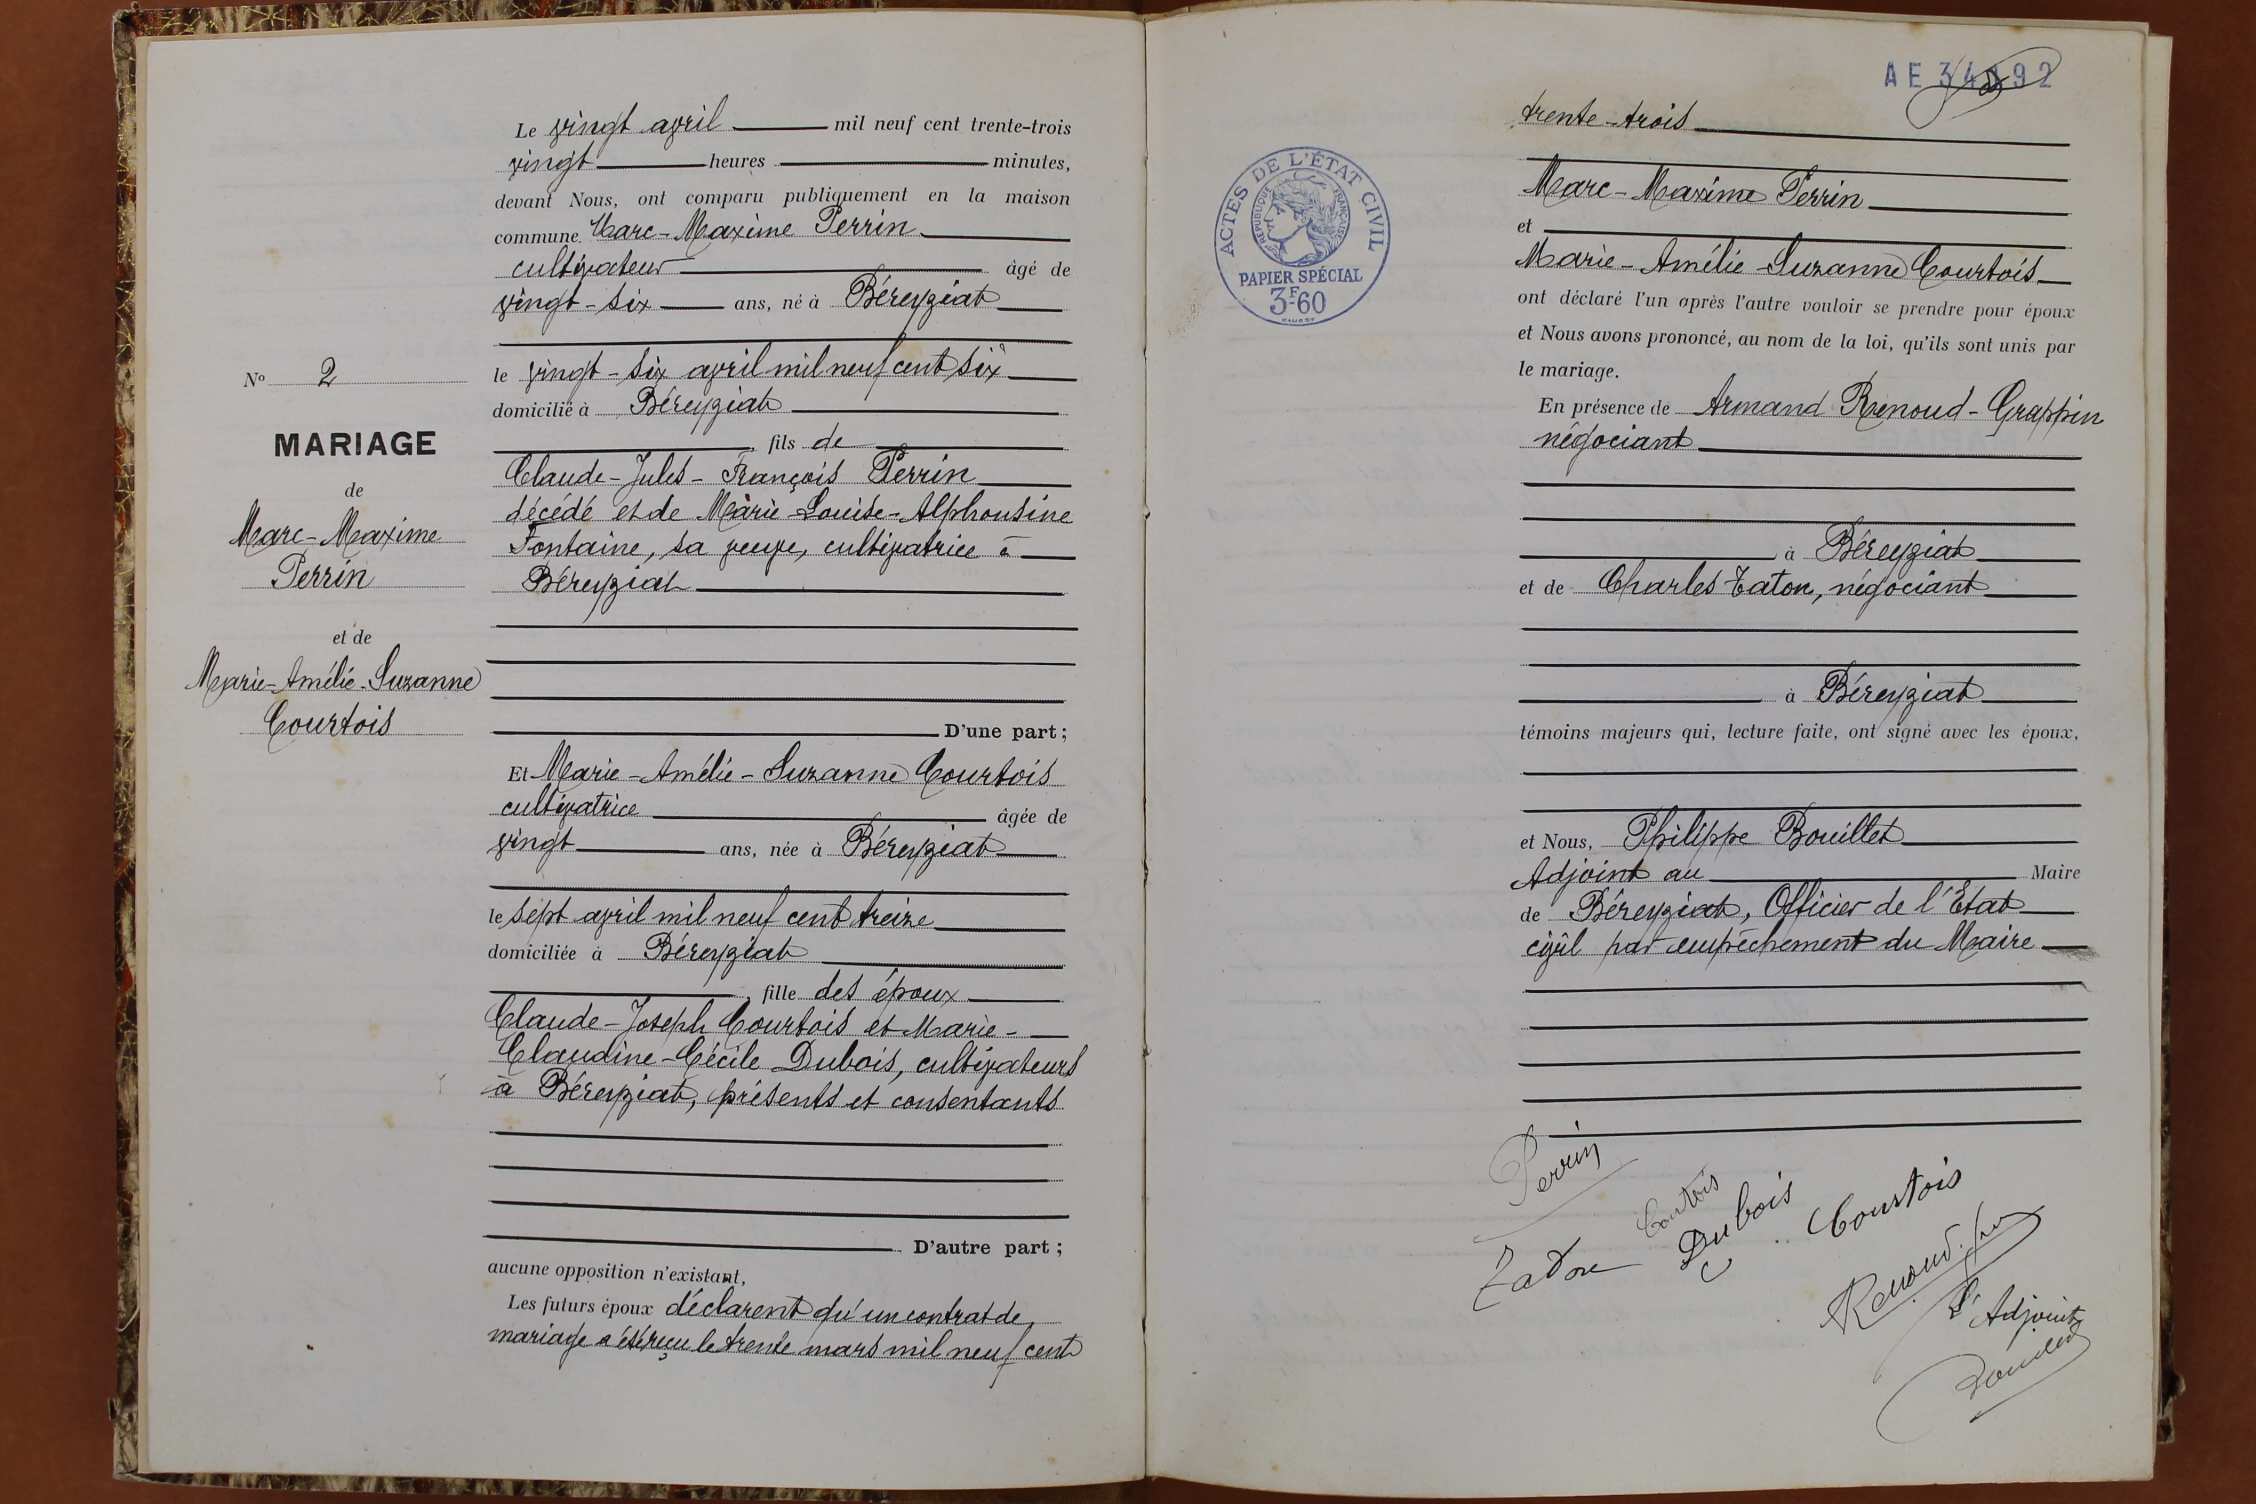 Le vingt avril mil neuf cent trente-trois
vingt heures minutes,
devant Nous, ont comparu publiquement en la maison
commune Marc-Maxime Perrin
cultivateur âgé de
vingt-six ans, né à Béreyziat
le vingt-six avril mil neuf cent six
domicilié à Béreyziat
fils de
Claude-Jules-François Perrin
décédé et de Marie-Louise-Alphonsine
Fontaine, sa veuve, cultivatrice à
Béreyziat
D'une part ;
Et Marie-Amélie-Suzanne Courtois
cultivatrice âgée de
vingt ans, née à Béreyziat
le sept avril mil neuf cent treize
domiciliée à Béreyziat
, fille des époux
Claude-Joseph Courtois et Marie-
Claudine-Cécile Dubois, cultivateurs
à Béreyziat, présents et consentants
D'autre part ;
aucune opposition n'existant,
Les futurs époux déclarent qu'un contrat de
mariage a été reçu le trente mars mil neuf cent
No 2
MARIAGE
de
Marc-Maxime
Perrin
et de
Marie-Amélie-Suzanne
Courtois
ACTES DE L'ÉTAT CIVIL
RÉPUBLIQUE FRANÇAISE
PAPIER SPÉCIAL
3F60
trente-trois
Marc-Maxime Perrin
et
Marie-Amélie-Suzanne Courtois
ont déclaré l'un après l'autre vouloir se prendre pour époux
et Nous avons prononcé, au nom de la loi, qu'ils sont unis par
le mariage.
En présence de Armand Renoud-Grappin
négociant
à Béreyziat
et de Charles Taton, négociant
à Béreyziat
témoins majeurs qui, lecture faite, ont signé avec les époux,
et Nous, Philippe Bouillet
Adjoint au Maire
de Béreyziat, Officier de l'Etat
civil par empêchement du Maire
Perrin
Courtois
Taton Dubois Courtois
L'Adjoint
Bouillet